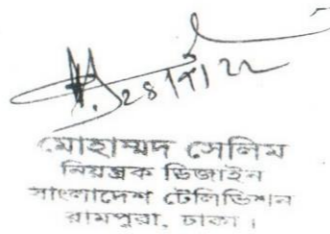 মোহাম্মদ সেলিম
নিয়ন্ত্রক ডিজাইন
বাংলাদেশ টেলিভিশন
রামপুরা, ঢাকা।